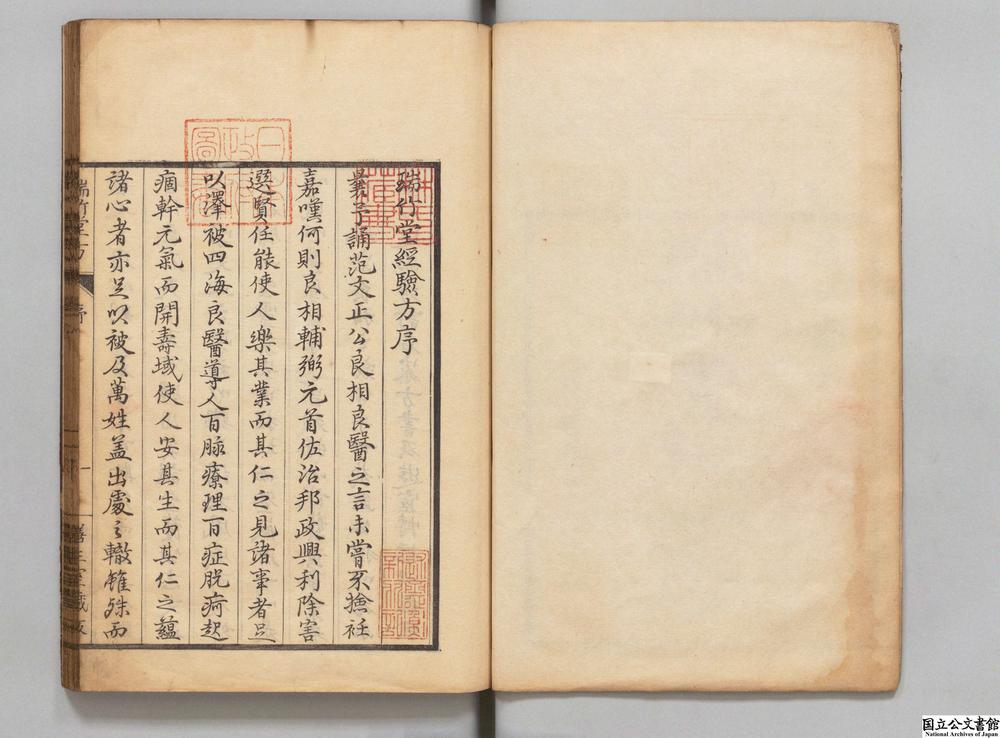 瑞竹堂經驗方序
曩予誦范文正公良相良醫之言未嘗不捨衽
嘉嘆何則良相輔弼元首佐治邦政興利除害
選賢任能使人樂其業而其仁之見諸事者足
以澤被四海良醫導人百脉療理百症脫痾起
痼幹元氣而開壽域使人安其生而其仁之蘊
諸心者亦足以被及萬姓蓋出處之轍雖殊而
瑞竹堂方
序
国立公文書館
National Archives of Japan